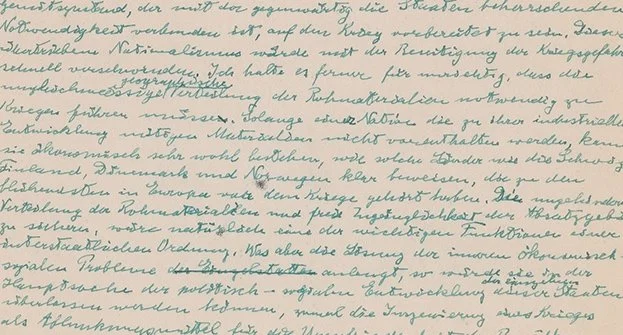 genseitzustand, der mit der gegenwärtig die Staaten beherrschenden
Notwendigkeit verbunden ist, auf den Krieg vorbereitet zu sein. Dieser
übertriebene Nationalismus würde mit der Beseitigung der Kriegsgefahr
schnell verschwinden. Ich halte es ferner für unrichtig, dass die
geographische
ungleichmässige Verteilung der Rohmaterialien notwendig zu
Kriegen führen müssen. Solange einer Nation die zu ihrer industriellen
Entwicklung nötigen Materialien nicht vorenthalten werden, kann
sie ökonomisch sehr wohl bestehen, wie solche Länder wie die Schweiz,
Finland, Dänemark und Norwegen klar beweisen, die zu den
blühendsten in Europa vor dem Kriege gehört haben. Die
Verteilung der Rohmaterialien und freie Zugänglichkeit der Absatzgebiete
zu sichern, wäre natürlich eine der wichtigen Funktionen einer
überstaatlichen Ordnung. Was aber die Lösung der inneren ökonomisch-
sozialen Probleme der Einzelstaaten anlangt, so würde sie in der
der einzelnen
Hauptsache der politisch-sozialen Entwicklung dieser Staaten
überlassen werden können, zumal die Inszenierung eines Krieges
als Ablenkungsmittel für die